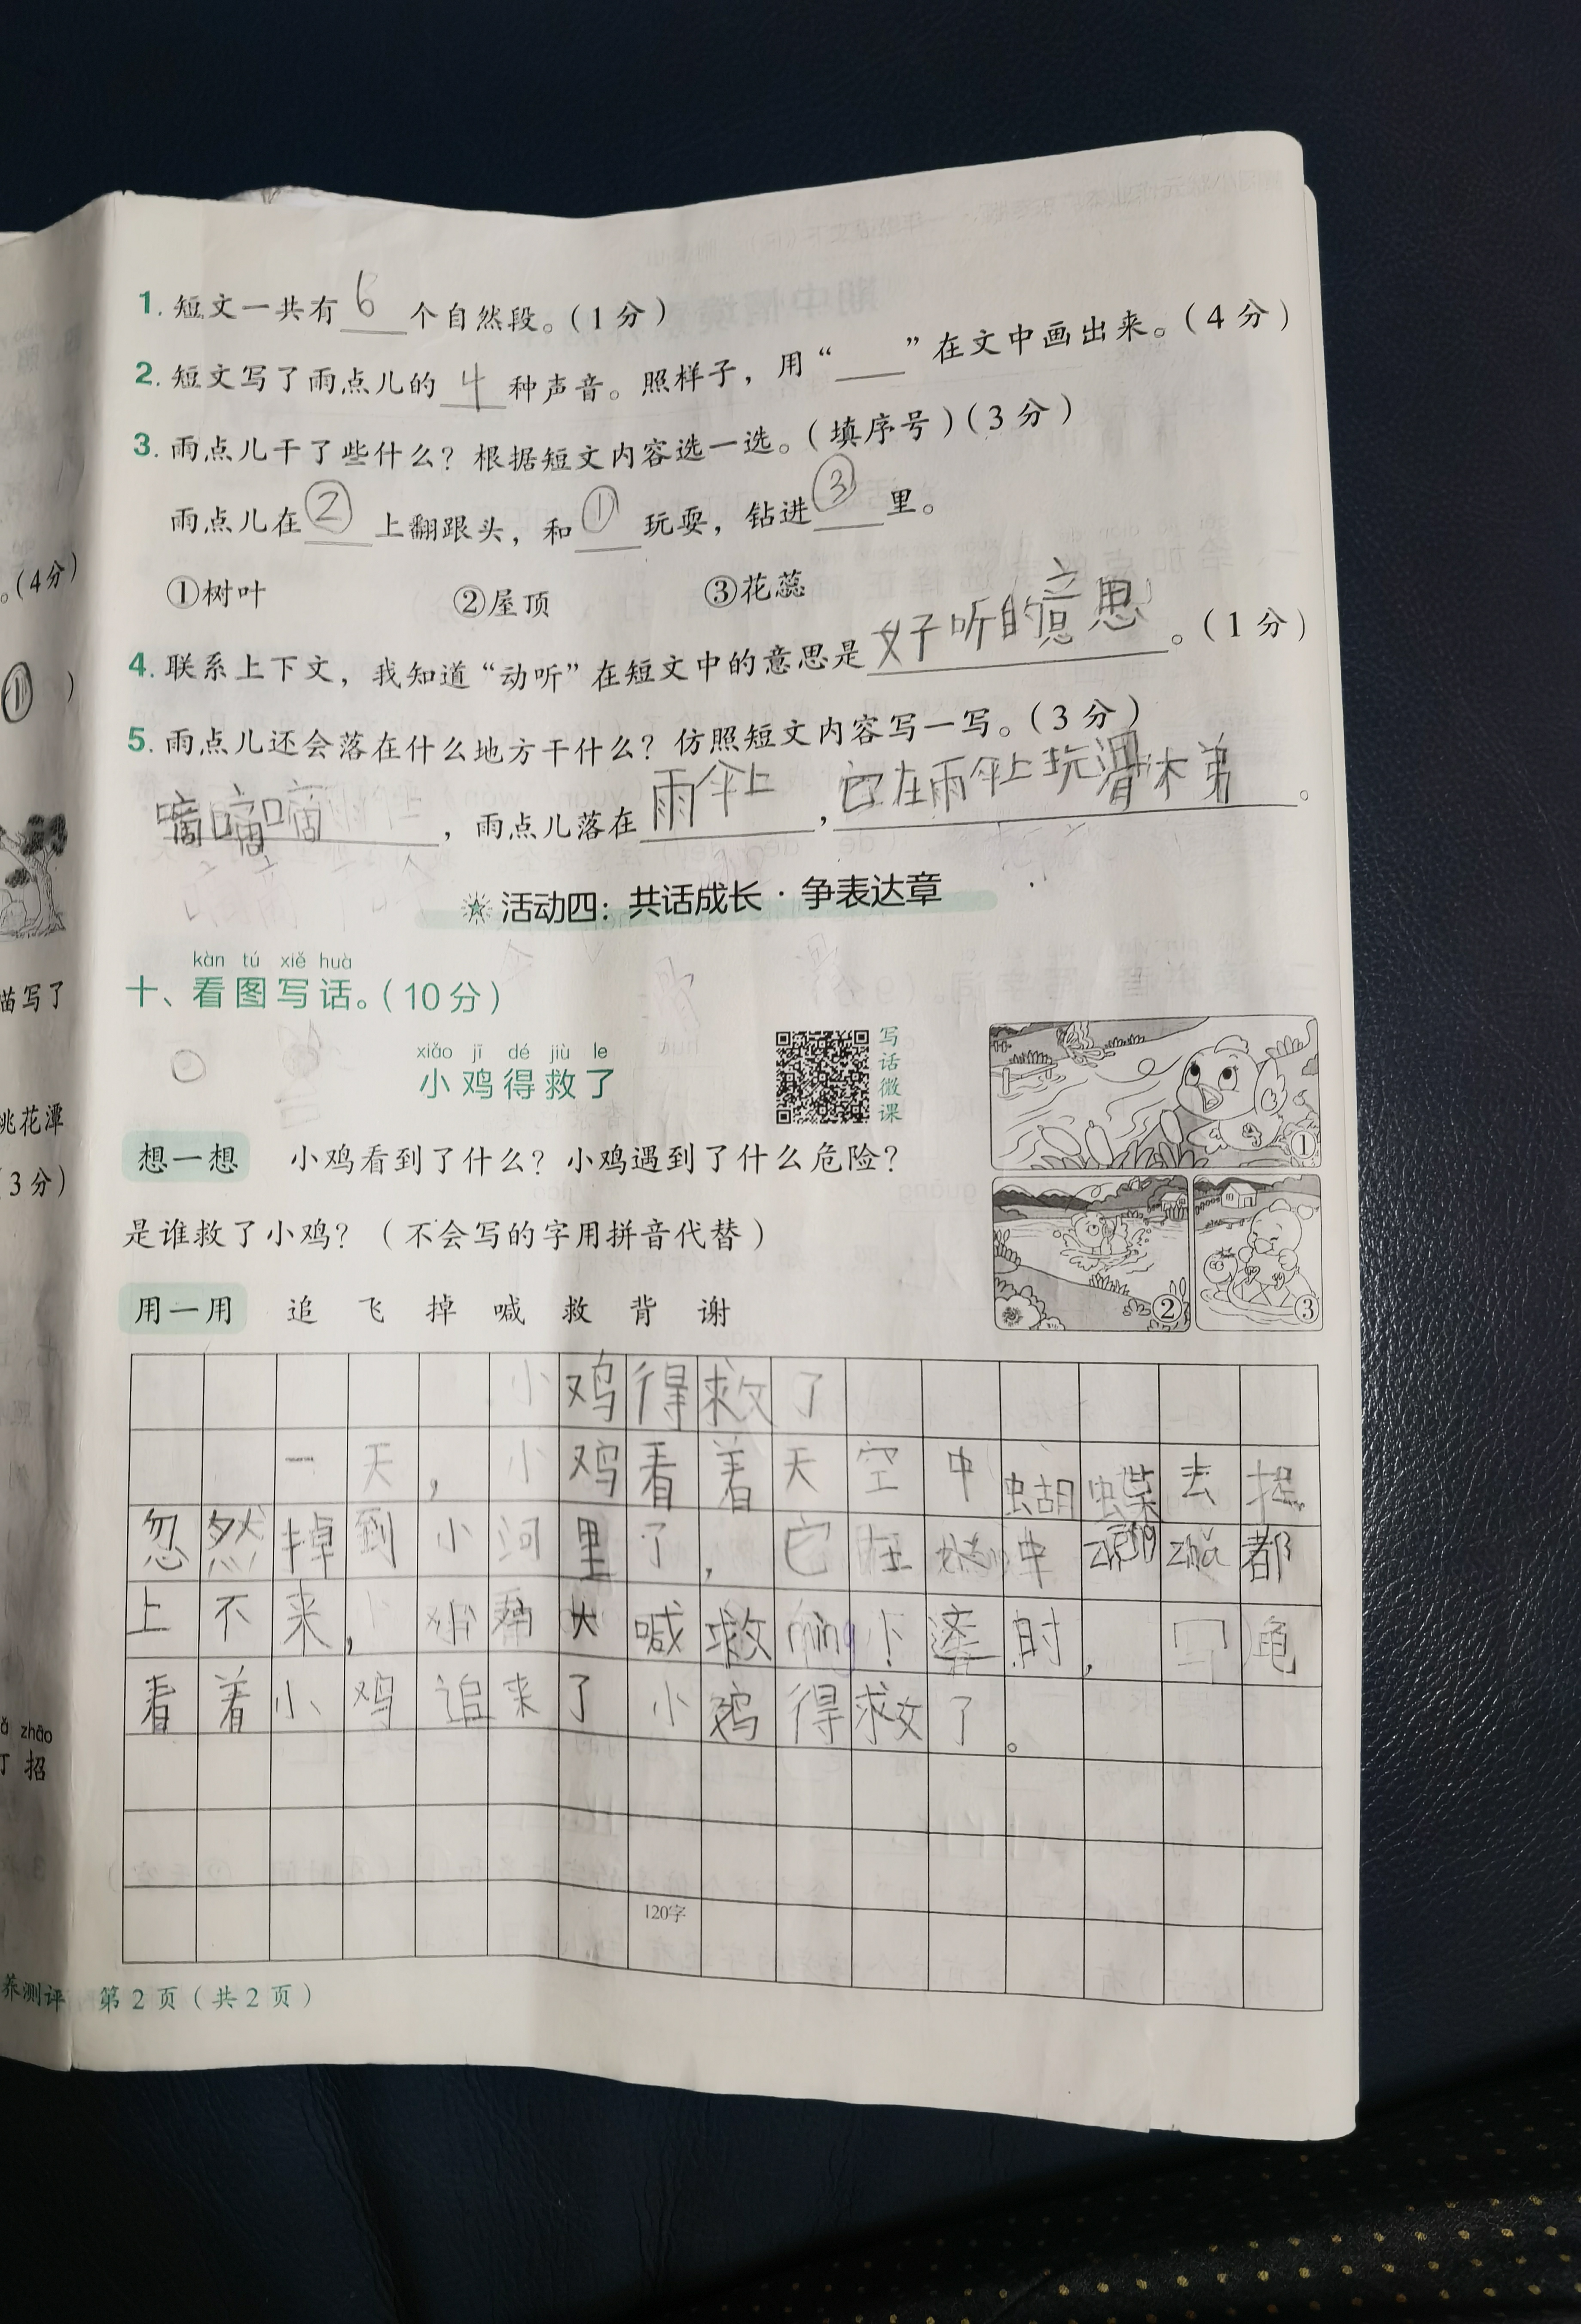 1. 短文一共有 6 个自然段。(1分)
2. 短文写了雨点儿的 4 种声音。照样子，用“___”在文中画出来。(4分)
3. 雨点儿干了些什么？根据短文内容选一选。(填序号)(3分)
雨点儿在 ② 上翻跟头，和 ① 玩耍，钻进 ③ 里。
①树叶 ②屋顶 ③花蕊
4. 联系上下文，我知道“动听”在短文中的意思是 好听的意思 。(1分)
5. 雨点儿还会落在什么地方干什么？仿照短文内容写一写。(3分)
嘀嘀嘀 ，雨点儿落在 雨伞上 ， 它在雨伞上玩滑梯 。
活动四：共话成长·争表达章
kàn tú xiě huà
十、看图写话。(10分)
xiǎo jī dé jiù le
小鸡得救了
写话微课
想一想 小鸡看到了什么？小鸡遇到了什么危险？
是谁救了小鸡？(不会写的字用拼音代替)
用一用 追 飞 掉 喊 救 背 谢
① ② ③
小鸡得救了
一天，小鸡看着天空中蝴蝶去
忽然掉到小河里了，它在 中 zhēng zhá 都
上不来， 大喊救 mìng 这时， 龟
看着小鸡追来了 小鸡得救了。
120字
养测评 第2页(共2页)
。(4分)
① )
苗写了
桃花潭
(3分)
zhāo
打招